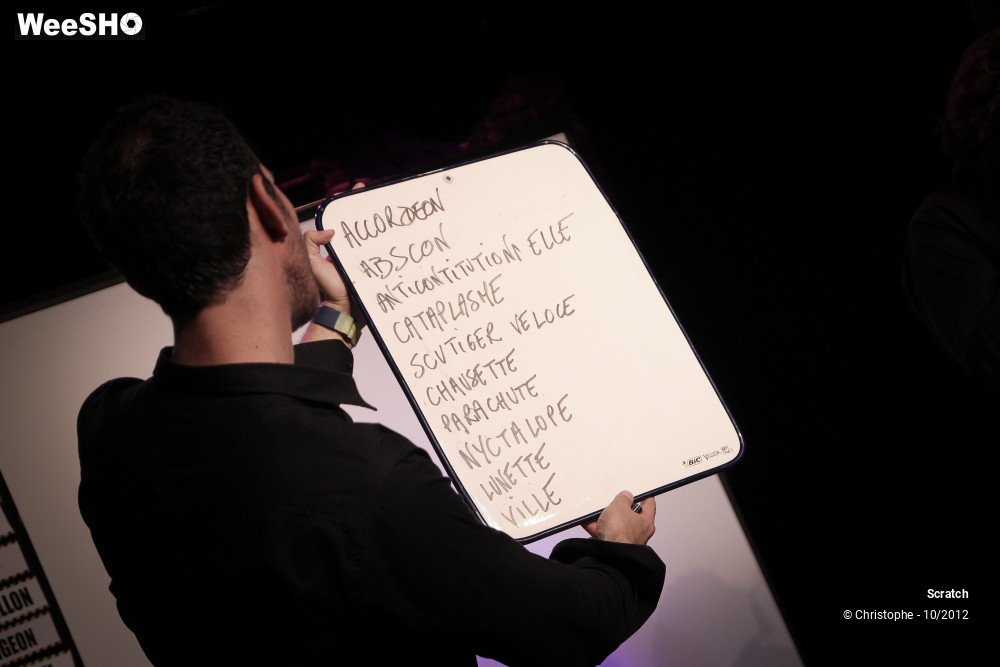 WeeSHO
ACCORDEON
ABSCON
ANTICONTITUTIONNELLE
CATAPLASME
SCUTIGER VELOCE
CHAUSETTE
PARACHUTE
NYCTALOPE
LUNETTE
VILLE
BIC Velleda
LLON
GEON
Scratch
© Christophe - 10/2012